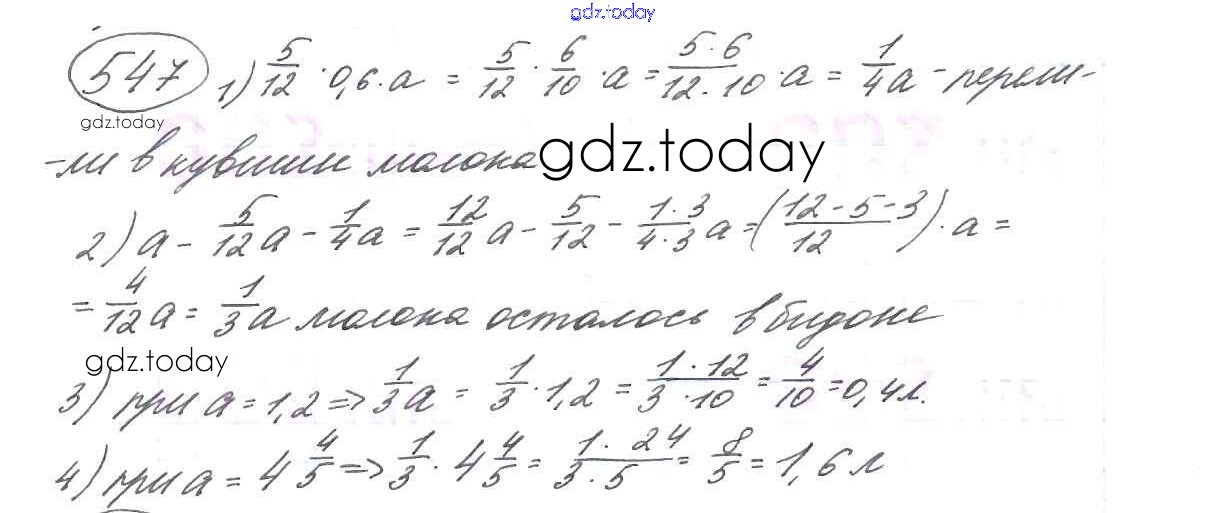 gdz.today
547 1) 5/12 · 0,6 · a = 5/12 · 6/10 · a = 5·6/12·10 · a = 1/4a - перели-
gdz.today
-ли в кувшин молока gdz.today
2) a - 5/12a - 1/4a = 12/12a - 5/12 - 1·3/4·3a = (12-5-3/12) · a =
= 4/12a = 1/3a молока осталось в бидоне
gdz.today
3) при a = 1,2 => 1/3a = 1/3 · 1,2 = 1·12/3·10 = 4/10 = 0,4л.
4) при a = 4 4/5 => 1/3 · 4 4/5 = 1·24/3·5 = 8/5 = 1,6л